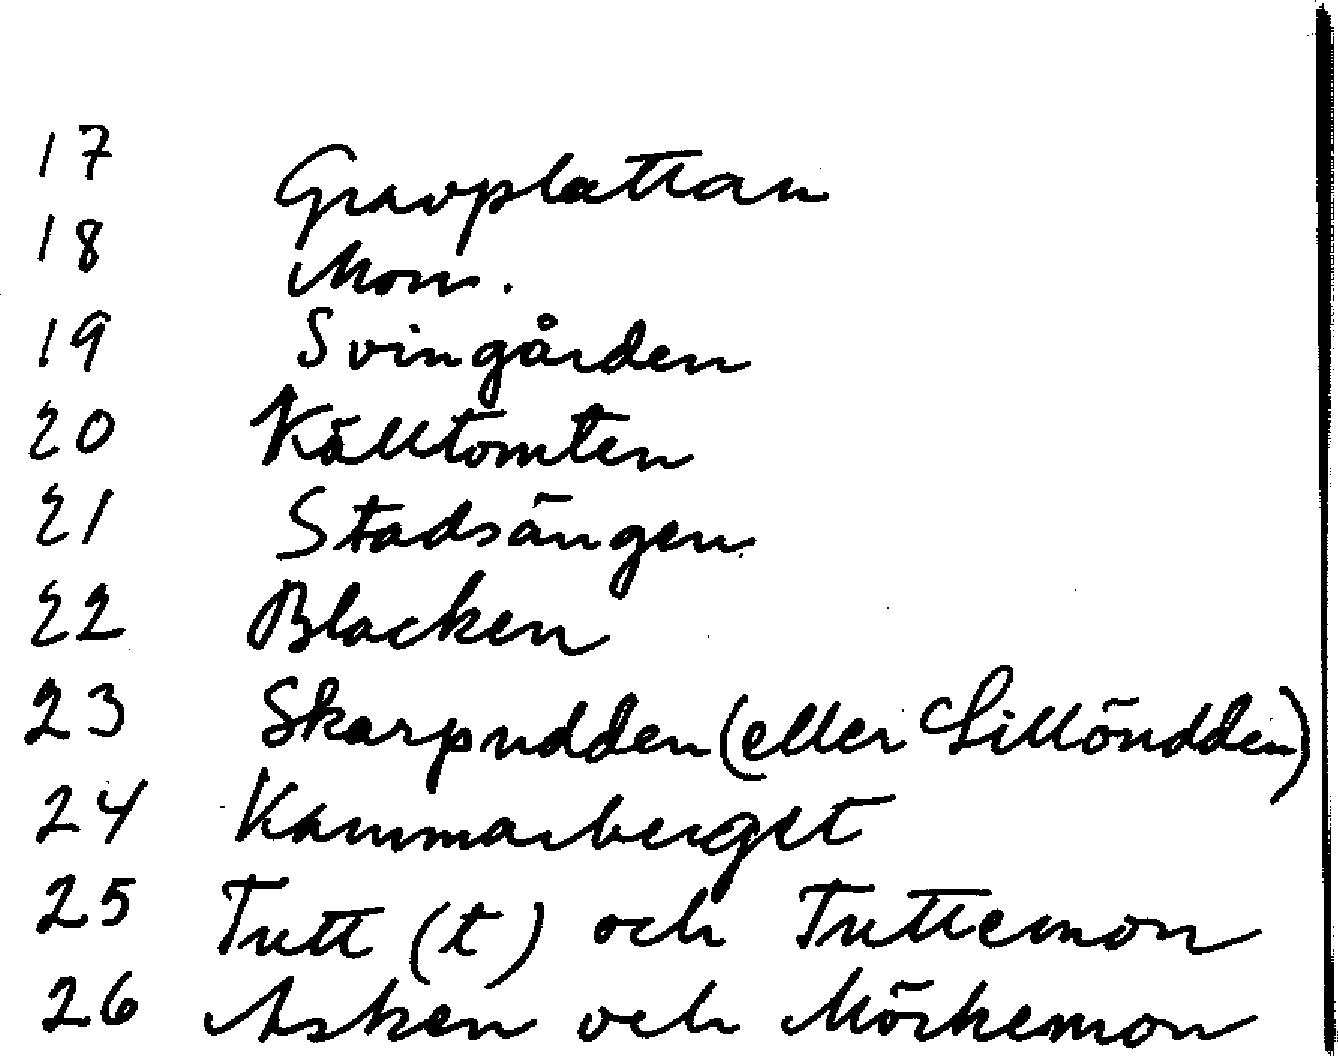 17 Gravplattan
18 Mon.
19 Svingården
20 Källtomten
21 Stadsängen
22 Blacken
23 Skarpudden (eller Lillöudden)
24 Kammarberget
25 Tutt (t) och Tuttemon
26 Asken och Mörkemon